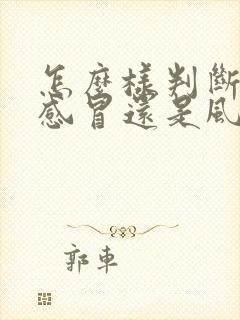 怎麼樣判斷
感冒還是風
郭車